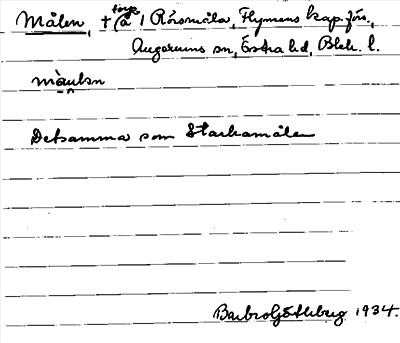 Målen, † torp å 1 Rörsmåla, Flymens kap.förs.,
Augerums sn, Östra hd, Blek. l.
Detsamma som Starkamålen
Barbro Götleberg 1934.